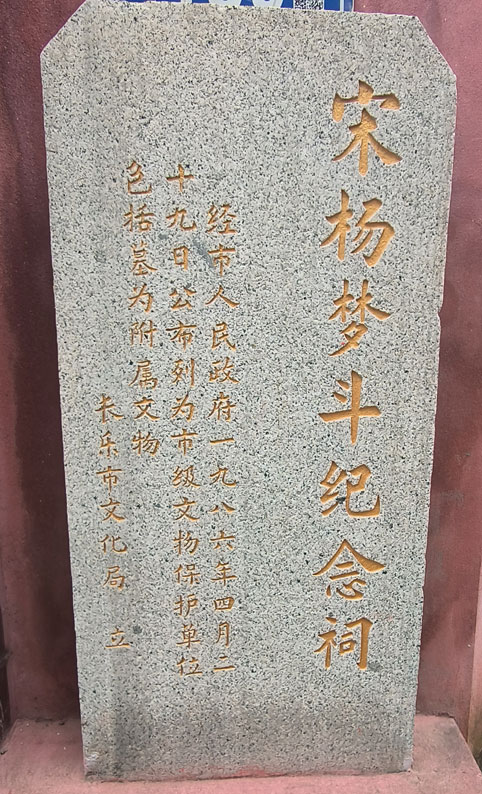 宋杨梦斗纪念祠
经市人民政府一九八六年四月二
十九日公布列为市级文物保护单位
包括墓为附属文物
长乐市文化局 立